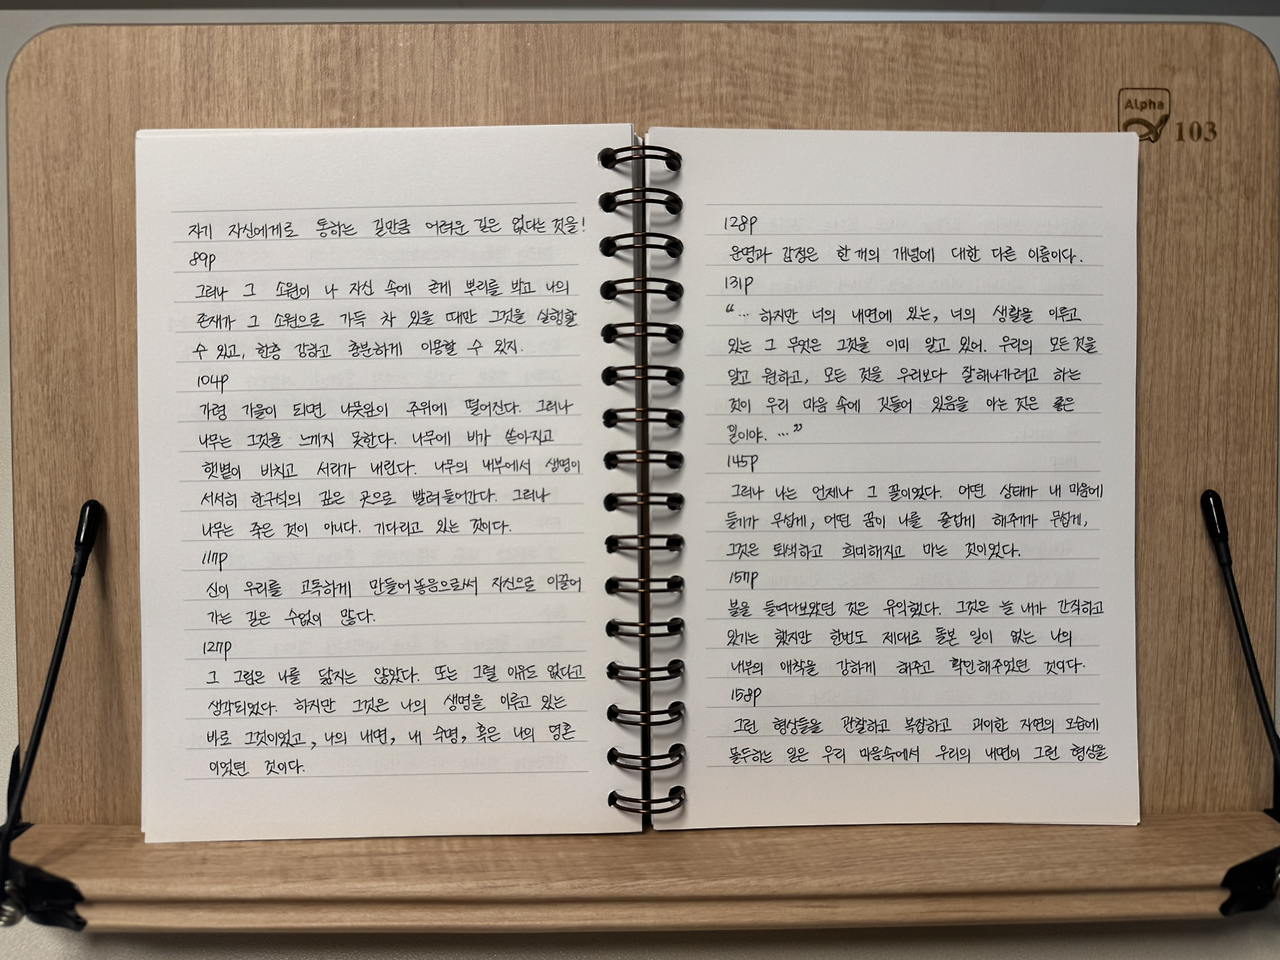 자기 자신에게로 통하는 길만큼 어려운 길은 없다는 것을!
89p
그러나 그 소원이 나 자신 속에 굳게 뿌리를 박고 나의
존재가 그 소원으로 가득 차 있을 때만 그것을 실행할
수 있고, 한층 강하고 충분하게 이용할 수 있지.
104p
가령 가을이 되면 나뭇잎이 주위에 떨어진다. 그러나
나무는 그것을 느끼지 못한다. 나무에 비가 쏟아지고
햇볕이 비치고 서리가 내린다. 나무의 내부에서 생명이
서서히 한구석의 깊은 곳으로 빨려들어간다. 그러나
나무는 죽은 것이 아니다. 기다리고 있는 것이다.
117p
신이 우리를 고독하게 만들어놓음으로써 자신으로 이끌어
가는 길은 수없이 많다.
127p
그 그림은 나를 닮지는 않았다. 또는 그럴 이유도 없다고
생각되었다. 하지만 그것은 나의 생명을 이루고 있는
바로 그것이었고, 나의 내면, 내 숙명, 혹은 나의 영혼
이었던 것이다.
128p
운명과 감정은 한 개의 개념에 대한 다른 이름이다.
131p
"… 하지만 너의 내면에 있는, 너의 생활을 이루고
있는 그 무엇은 그것을 이미 알고 있어. 우리의 모든 것을
알고 원하고, 모든 것을 우리보다 잘해나가려고 하는
것이 우리 마음 속에 깃들어 있음을 아는 것은 좋은
일이야. …"
145p
그러나 나는 언제나 그 꼴이었다. 어떤 상태가 내 마음에
들기가 무섭게, 어떤 꿈이 나를 즐겁게 해주기가 무섭게,
그것은 퇴색하고 희미해지고 마는 것이었다.
157p
불을 들여다보았던 것은 유익했다. 그것은 늘 내가 간직하고
있기는 했지만 한번도 제대로 돌본 일이 없는 나의
내부의 애착을 강하게 해주고 확인해주었던 것이다.
158p
그런 형상들을 관찰하고 복잡하고 괴이한 자연의 모습에
몰두하는 일은 우리 마음속에서 우리의 내면이 그런 형상을
Alpha
103